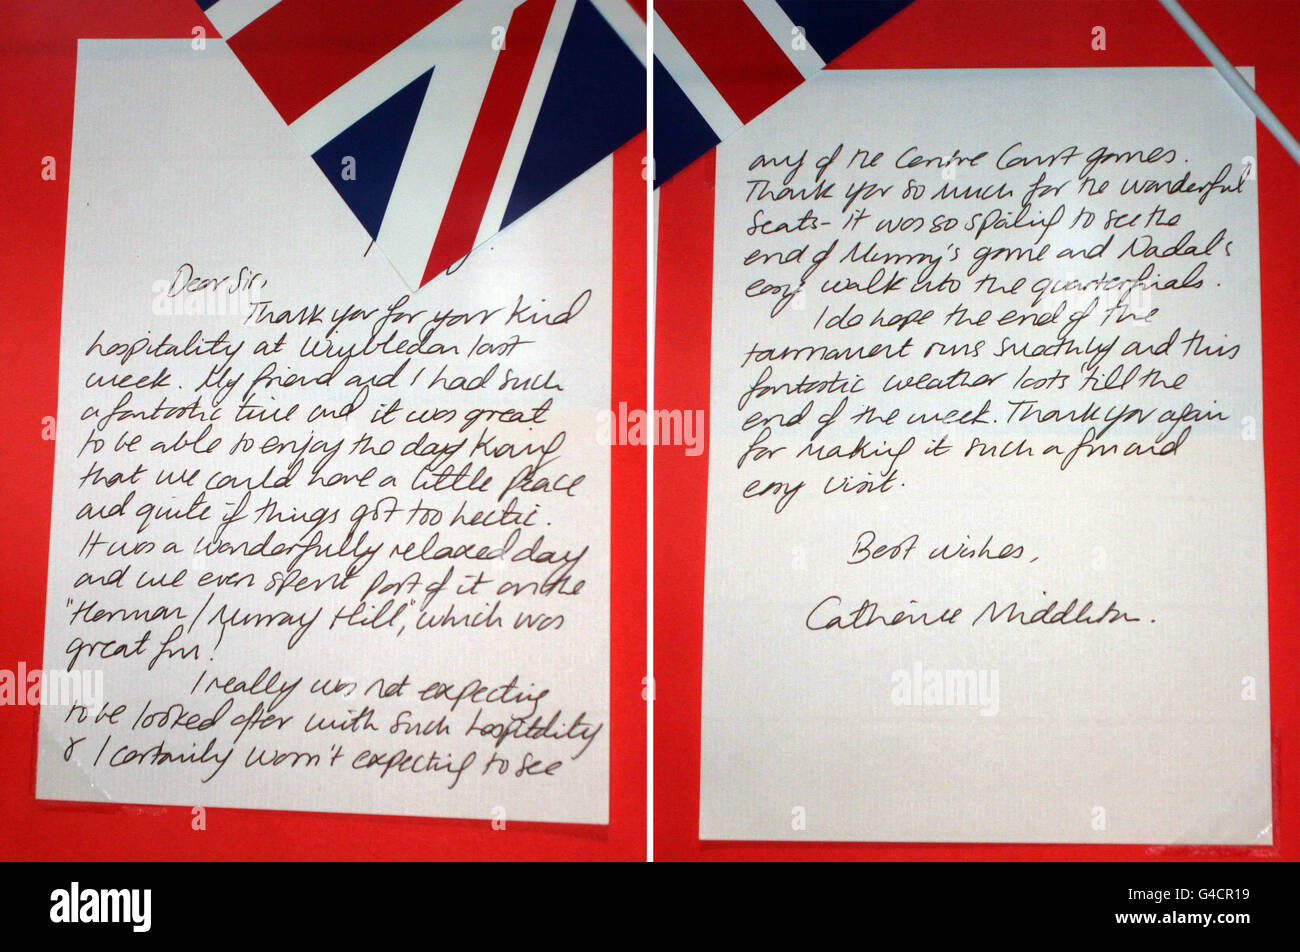 Dear Sir,
Thank you for your kind
hospitality at Wimbledon last
week. My friend and I had such
a fantastic time and it was great
to be able to enjoy the day knowing
that we could have a little peace
and quite if things got too hectic.
It was a wonderfully relaxed day
and we even spent part of it on the
"Henman / Murray Hill", which was
great fun!
I really was not expecting
to be looked after with such hospitality
& I certainly wasn't expecting to see
any of the Centre Court games.
Thank you so much for the wonderful
seats - it was so spoiling to see the
end of Murray's game and Nadal's
easy walk into the quarterfinals.
I do hope the end of the
tournament runs smoothly and this
fantastic weather lasts till the
end of the week. Thank you again
for making it such a fun and
easy visit.
Best wishes,
Catherine Middleton.
a
alamy
alamy
Image ID: G4CR19
www.alamy.com